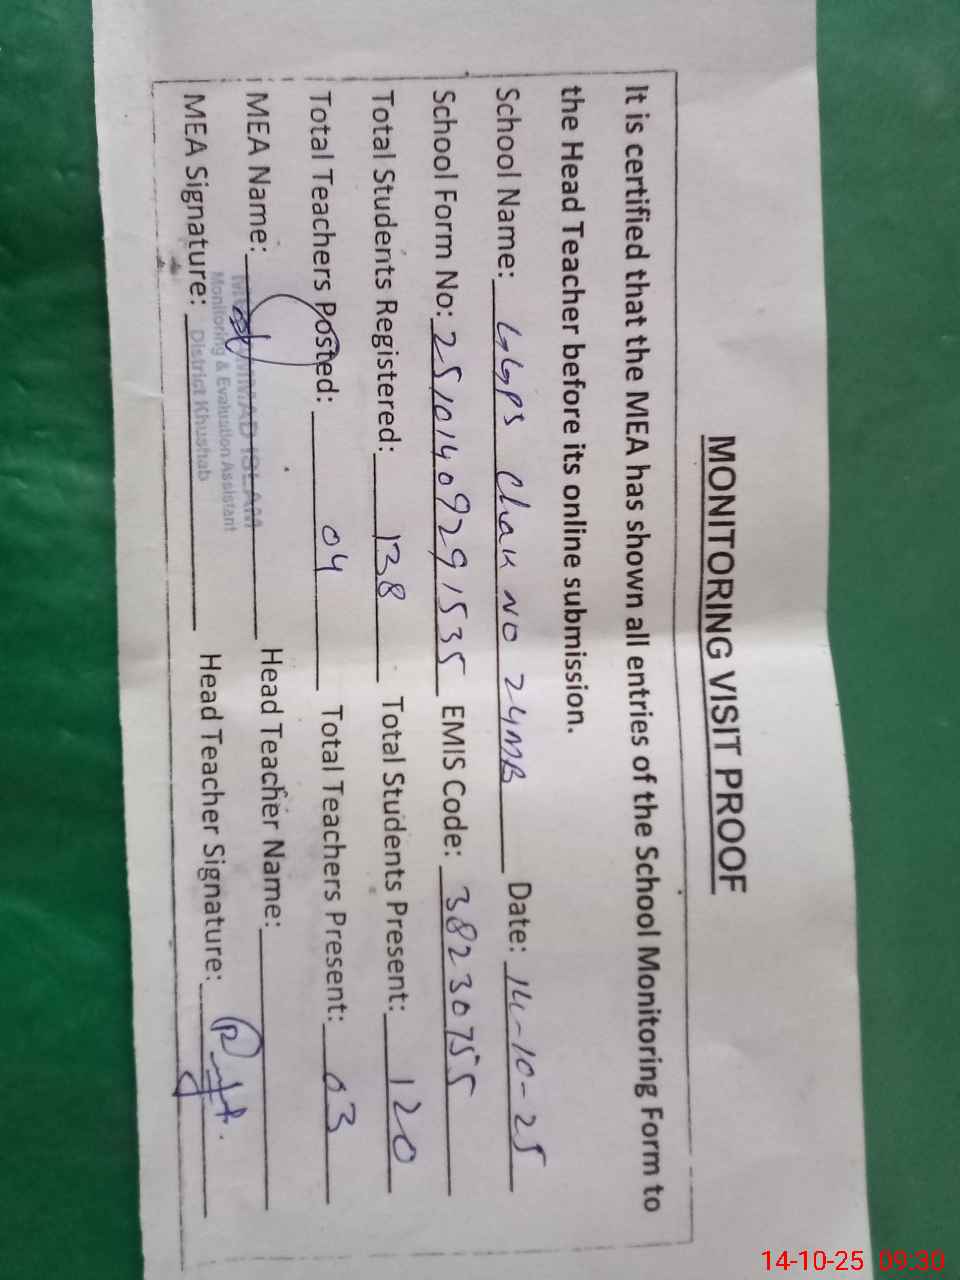 MONITORING VISIT PROOF
It is certified that the MEA has shown all entries of the School Monitoring Form to
the Head Teacher before its online submission.
School Name: GGPS Chak NO 24MB Date: 14-10-25
School Form No: 25101409291535 EMIS Code: 38230755
Total Students Registered: 138 Total Students Present: 120
Total Teachers Posted: 04 Total Teachers Present: 03
MEA Name: MUHAMMAD ISLAM Head Teacher Name:
Monitoring & Evaluation Assistant
District Khushab
MEA Signature: Head Teacher Signature:
14-10-25 09:30